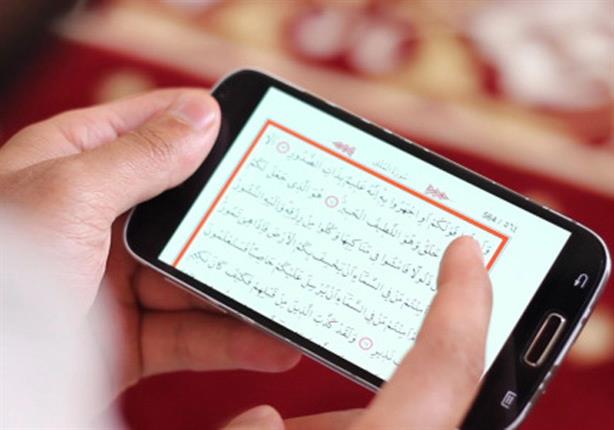 564 /
سورة الملك
قَوْلَكُمْ أَوِ اجْهَرُوا بِهِ إِنَّهُ عَلِيمٌ بِذَاتِ الصُّدُورِ أَلَا
خَلَقَ وَهُوَ اللَّطِيفُ الْخَبِيرُ هُوَ الَّذِي جَعَلَ لَكُمُ
ذَلُولًا فَامْشُوا فِي مَنَاكِبِهَا وَكُلُوا مِن رِّزْقِهِ وَإِلَيْهِ النُّشُورُ
مَّن فِي السَّمَاءِ أَن يَخْسِفَ بِكُمُ الْأَرْضَ فَإِذَا هِيَ تَمُورُ
أَمِنتُم مَّن فِي السَّمَاءِ أَن يُرْسِلَ عَلَيْكُمْ حَاصِبًا فَسَتَعْلَمُونَ
نَذِيرِ وَلَقَدْ كَذَّبَ الَّذِينَ مِن قَبْلِهِمْ فَكَيْفَ كَانَ نَكِيرِ